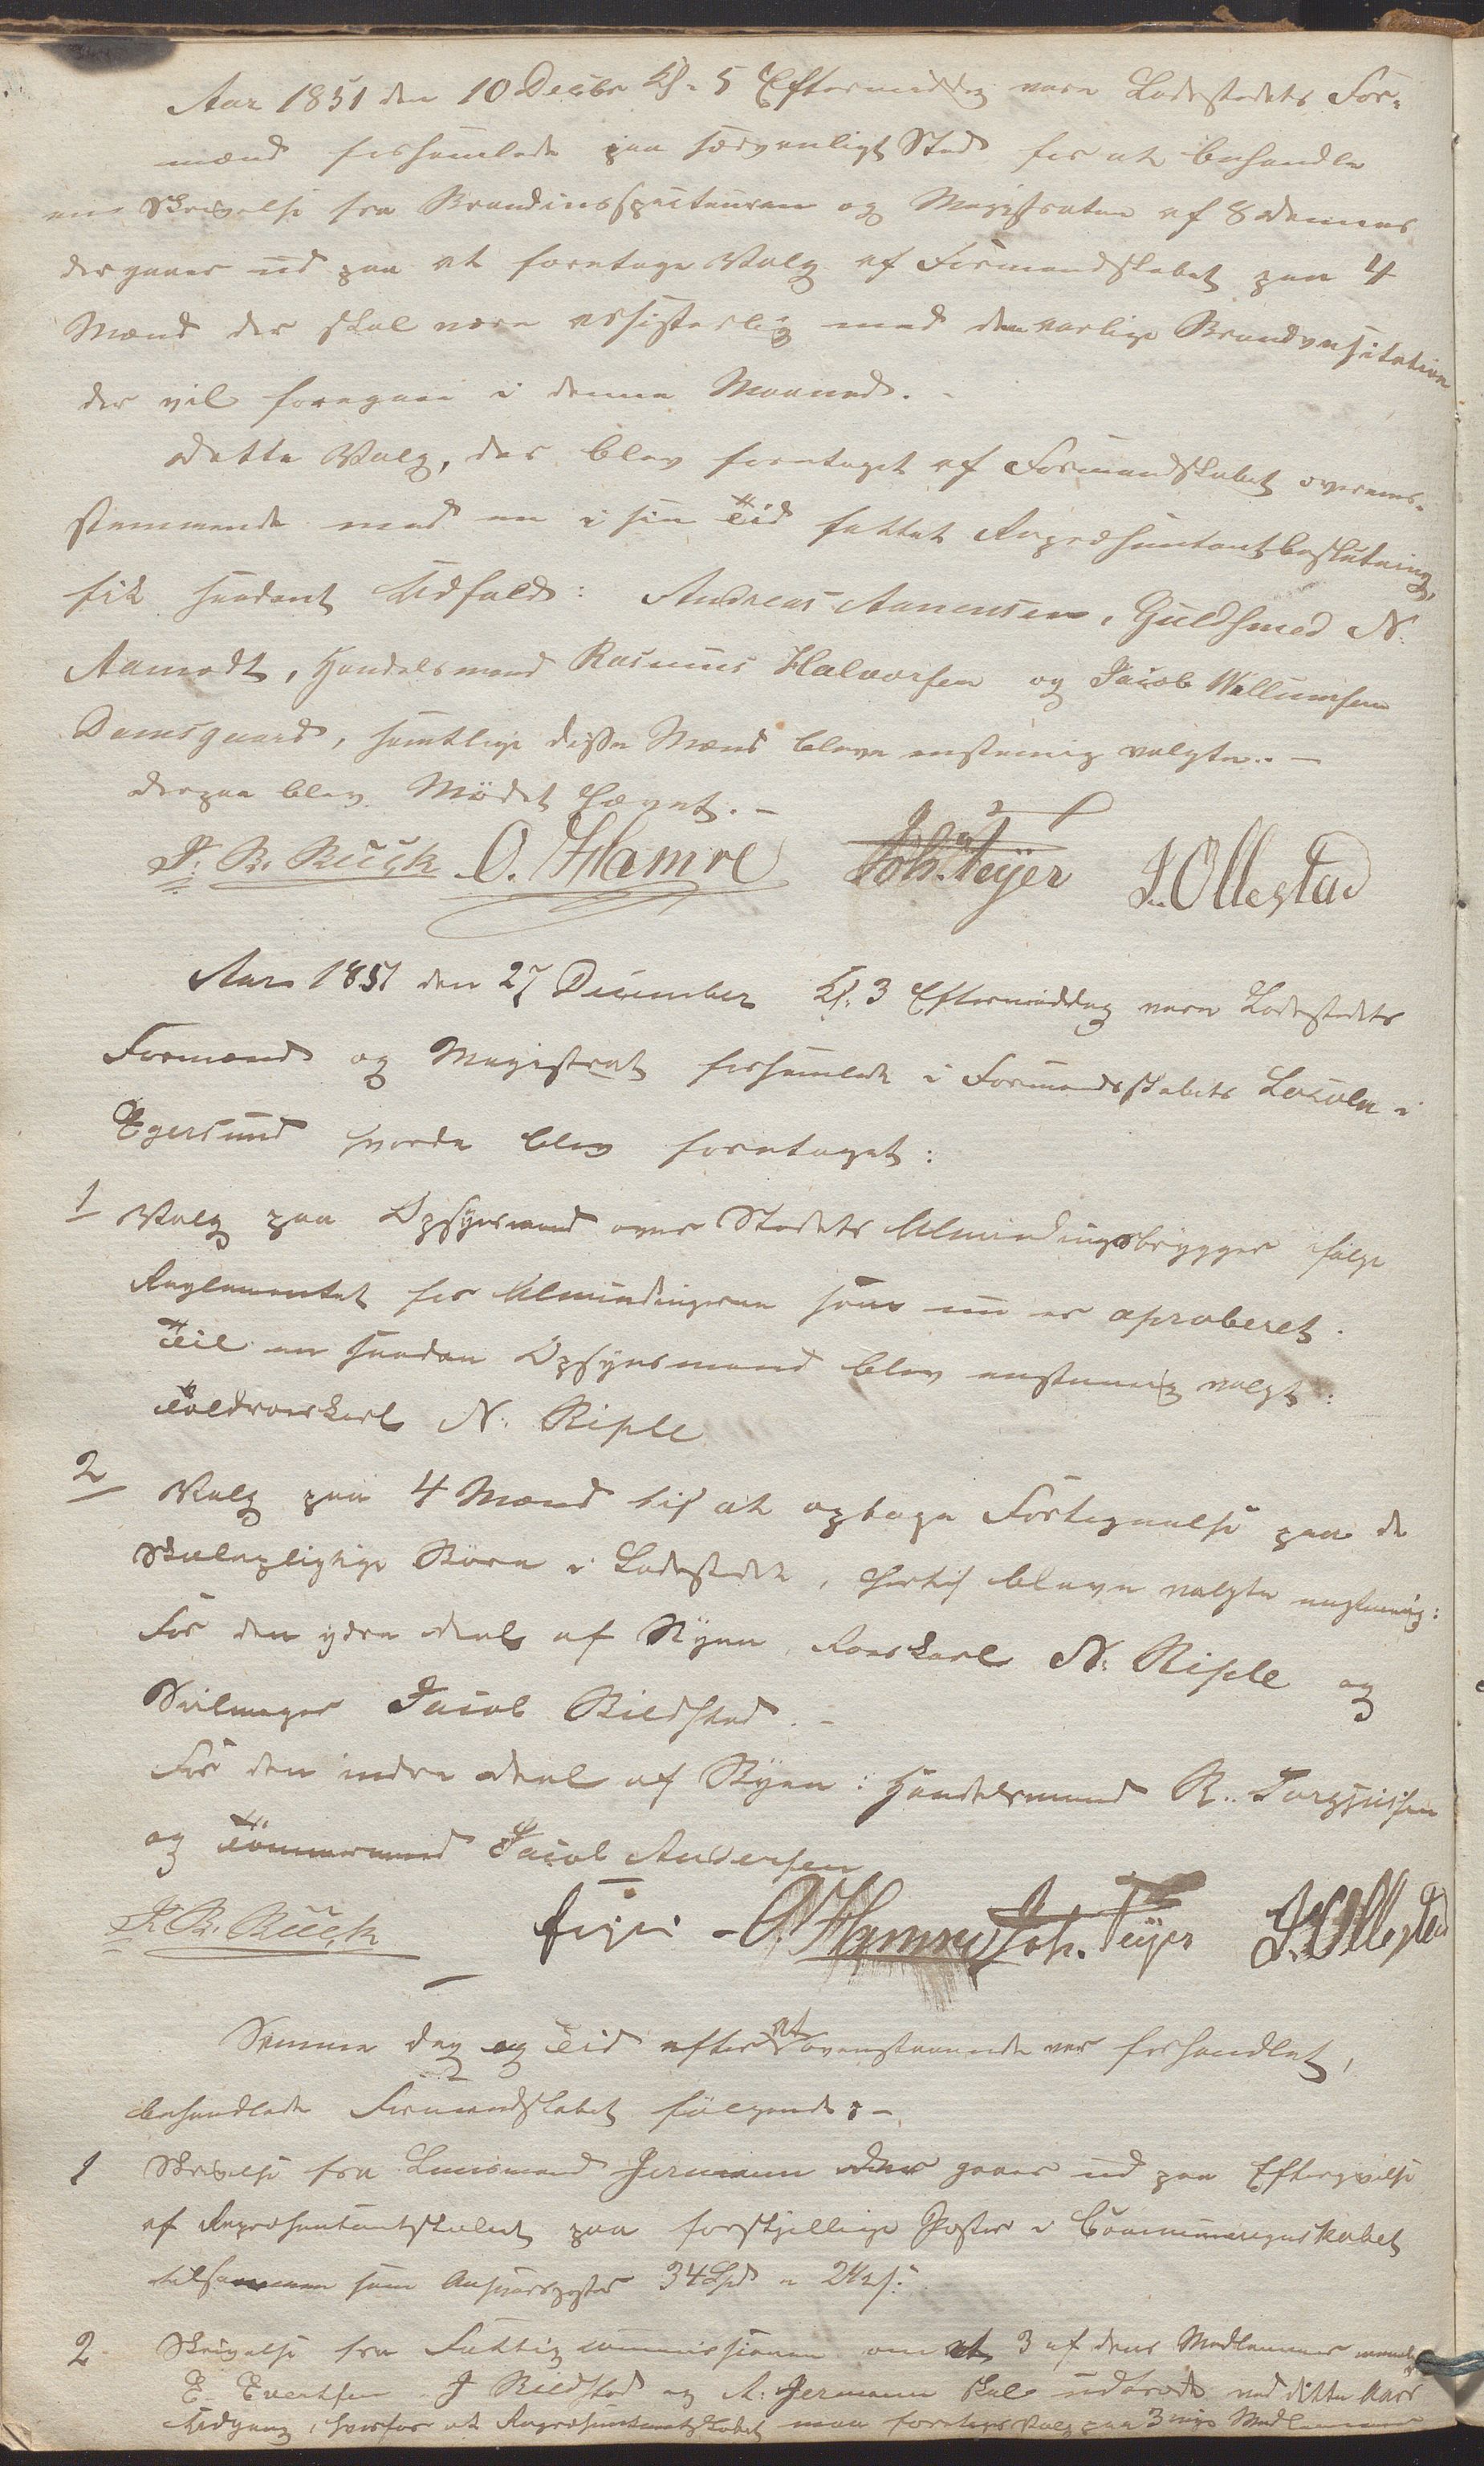 Aar 1851 den 10 Decbr Kl. 5 Eftermiddag vare Ladestedets For-
mænd forsamlede paa sædvanligt Sted for at behandle
en Skrivelse fra Brandinspecteuren og Magistraten af 8 dennes
der gaaer ud paa at foretage Valg af Formandskabet paa 4
Mænd der skal være assisterlig med den aarlige Brandvisitation
der vil foregaae i denne Maaned. -
Dette Valg, der blev foretaget af Formandskabet overens-
stemmende med en i sin Tid fattet Repræsentantbeslutning,
fik saadant Udfald: Andreas Aanensen, Guldsmed N.
Aamodt, Handelsmand Rasmus Halvorsen og Jacob Willumsen
Damsgaard, samtlige disse Mænd bleve enstemig valgte. -
Derpaa blev Mødet hævet. -
J. B. Buch O. Hamre Joh. Feyer J. Ollestad
Aar 1851 den 27 December Kl. 3 Eftermiddag vare Ladestedets
Formænd og Magistrat forsamlede i Formandsskabets Locale i
Egersund hvorda blev foretaget:
1 Valg paa Opsynsmand over Stedets Almindingsbrygger ifølge
Reglementet for Almindingerne som nu er aproberet.
Til en saadan Opsynsmand blev enstemig valgt:
Toldroerskarl N. Risple
2 Valg paa 4 Mænd til at optage Fortegnelse paa de
Skolepligtige Børn i Ladestedet, hertil bleve valgte enstemig:
For den ydre Deel af Byen, Roerskarl N. Risple og
Seilmager Jacob Bildstad. -
For den indre Deel af Byen: Handelsmand R. Torgjussen
og Tømmermand Jacob Andersen
J. B. Buch O. Hamre Joh. Feyer J. Ollestad
Samme Dag og Tid efter at ovenstaaende var forhandlet,
behandlede Formandskabet følgende: -
1 Skrivelse fra Lensmand Jermann der gaaer ud paa Eftergivelse
af Repræsentantskabet paa forskjellige Poster i Communeregnskabet
tilsammen som Ansvarsposter 34 Spd
2 Skrivelse fra Fattigcommissionen om at 3 af dens Medlemmer
E. Evertsen J Bildstad og A. Jermann skal udtræde ved dette Aars
Udgang, hvorfor at Repræsentantskabet maa foretage Valg paa 3 nye Medlemmer